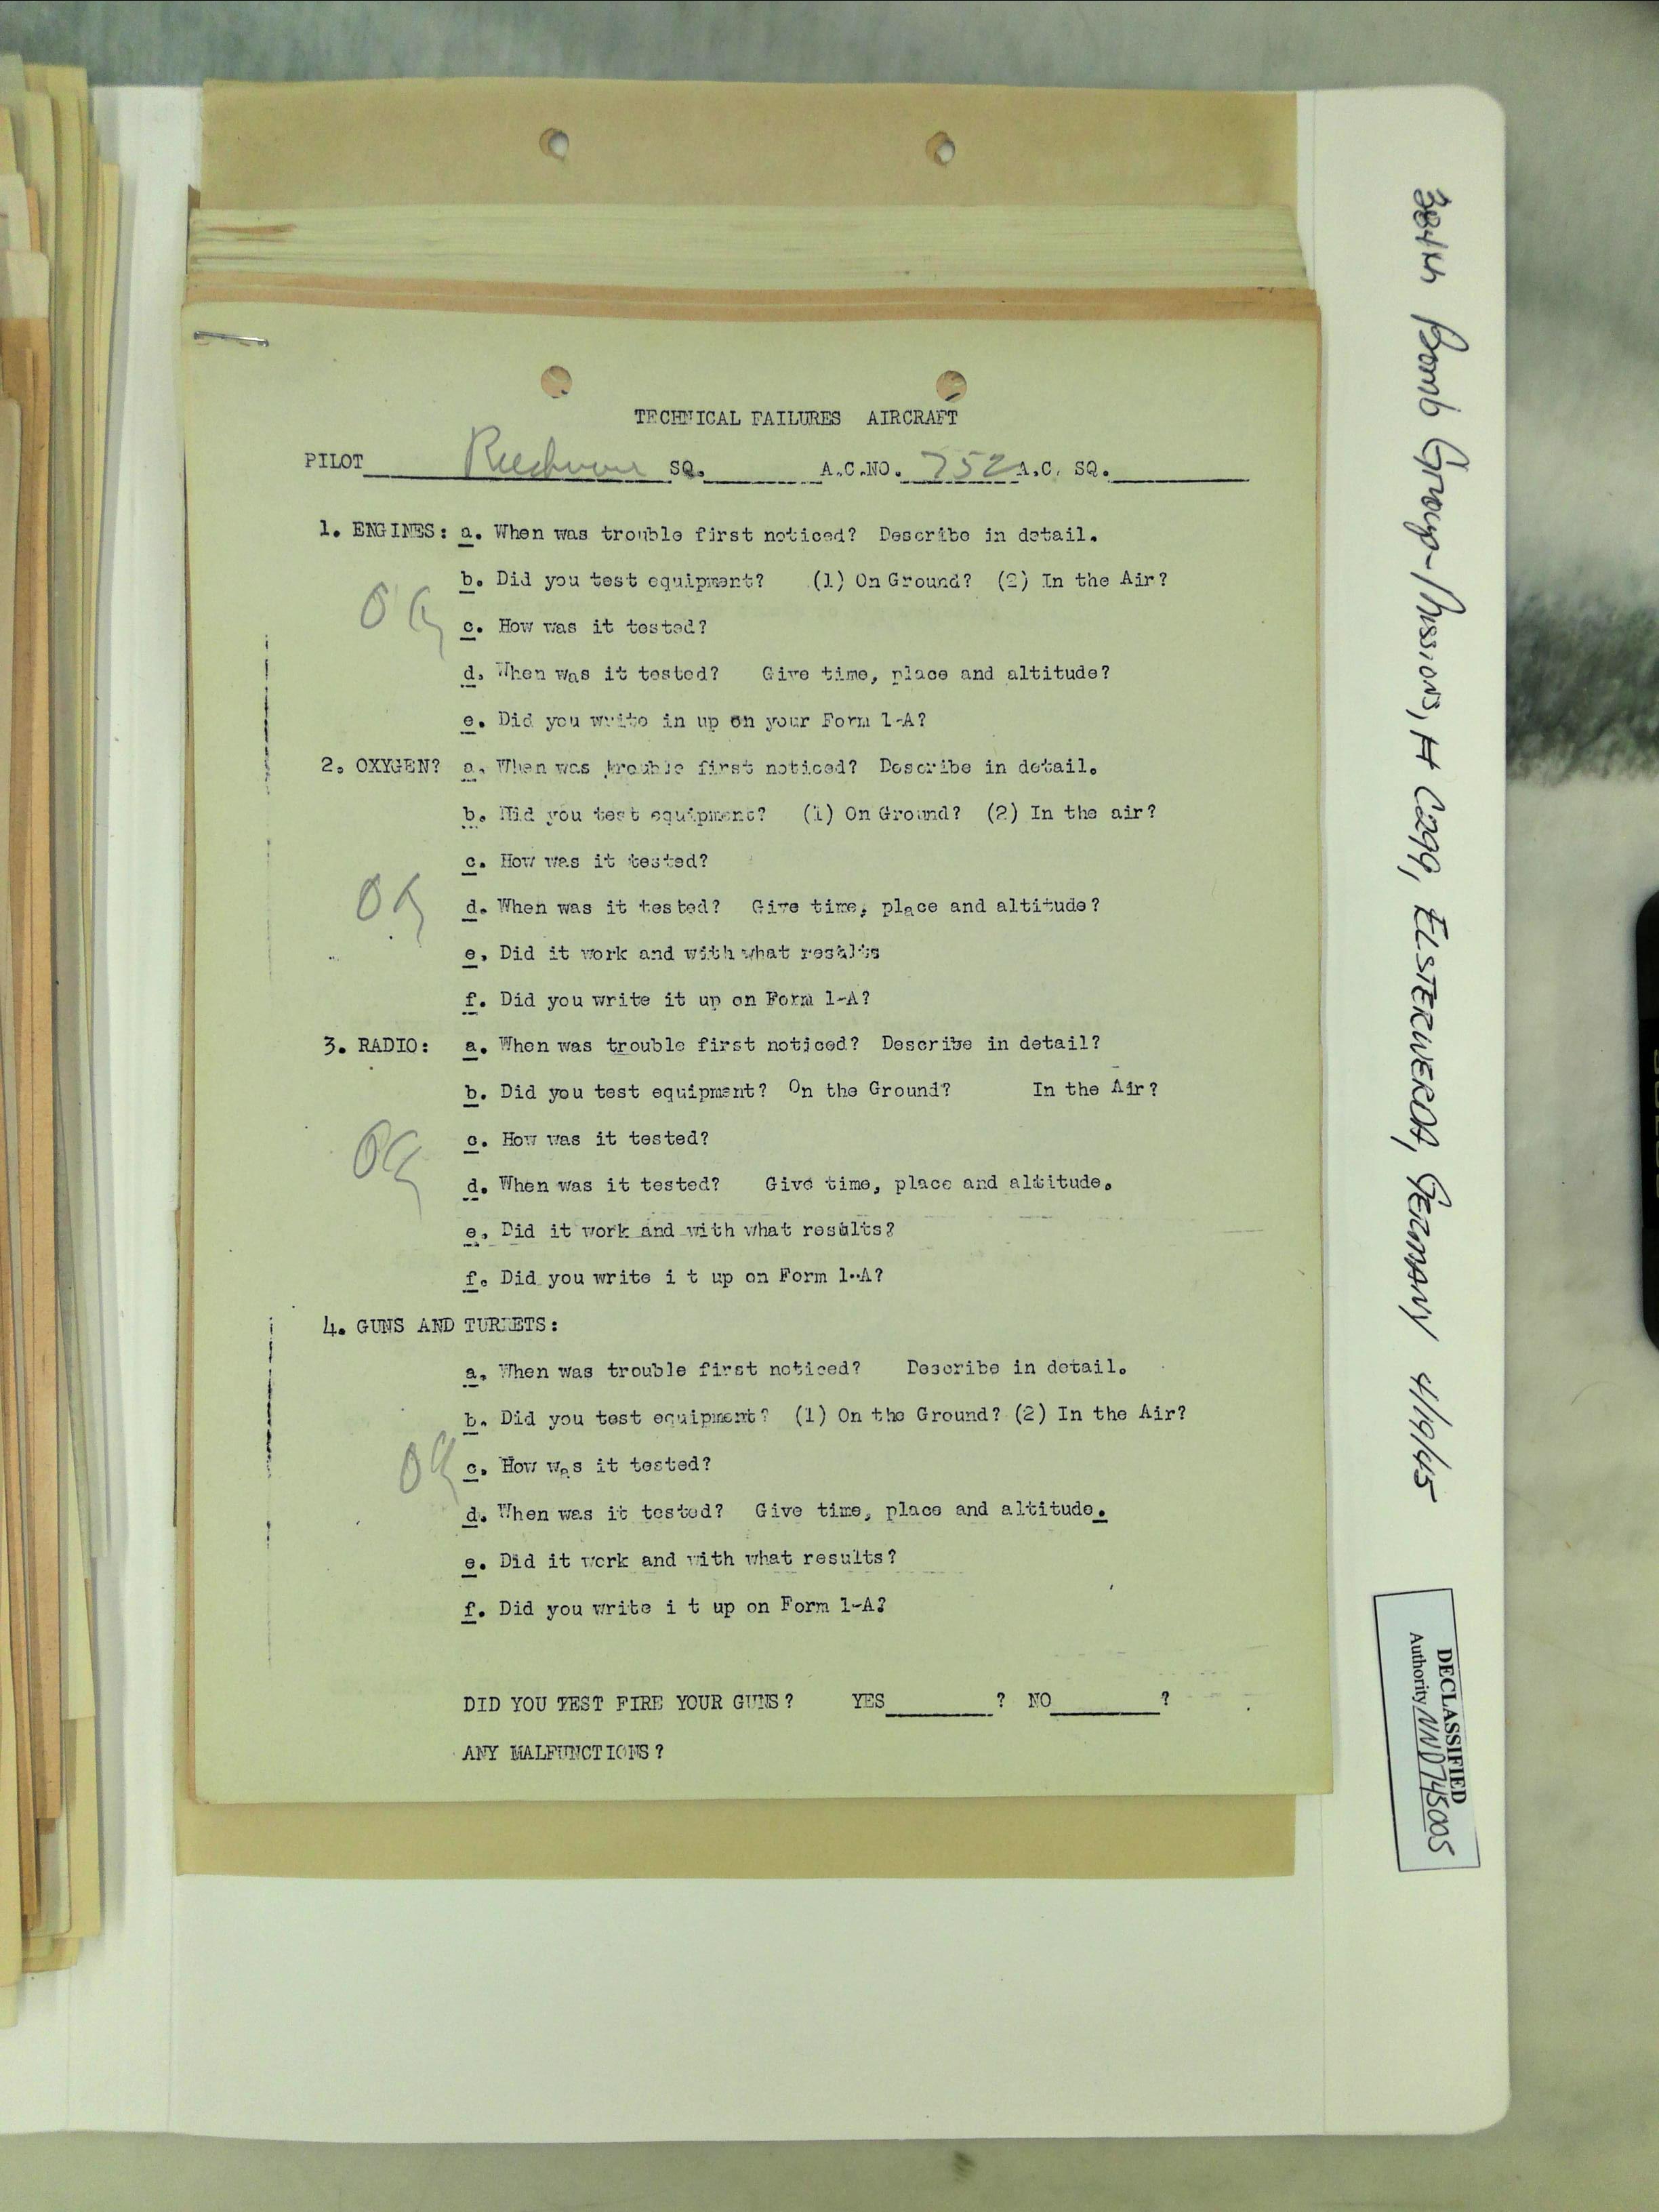 TECHNICAL FAILURES AIRCRAFT
PILOT SQ. A.C.NO. 752 A.C. SQ.
1. ENGINES: a. When was trouble first noticed? Describe in detail.
b. Did you test equipment? (1) On Ground? (2) In the Air?
OK
c. How was it tested?
d. When was it tested? Give time, place and altitude?
e. Did you write in up on your Form 1-A?
2. OXYGEN? a. When was trouble first noticed? Describe in detail.
b. Did you test equipment? (1) On Ground? (2) In the air?
c. How was it tested?
OK
d. When was it tested? Give time, place and altitude?
e. Did it work and with what results
f. Did you write it up on Form 1-A?
3. RADIO: a. When was trouble first noticed? Describe in detail?
b. Did you test equipment? On the Ground? In the Air?
OK
c. How was it tested?
d. When was it tested? Give time, place and altitude.
e. Did it work and with what results?
f. Did you write i t up on Form 1-A?
4. GUNS AND TURRETS:
a. When was trouble first noticed? Describe in detail.
b. Did you test equipment? (1) On the Ground? (2) In the Air?
OK
c. How was it tested?
d. When was it tested? Give time, place and altitude.
e. Did it work and with what results?
f. Did you write i t up on Form 1-A?
DID YOU TEST FIRE YOUR GUNS? YES ? NO ?
ANY MALFUNCTIONS?
384th Bomb Group-Missions, # C299, ELSTERWERDA, GERMANY 4/19/45
DECLASSIFIED
Authority NND745005